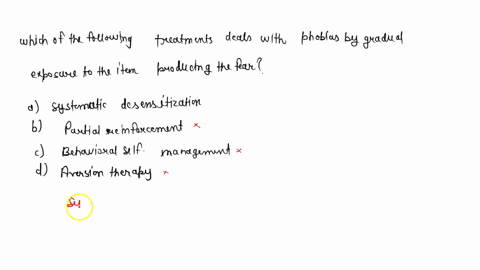 which of the following treatments deals with phobias by gradual
exposure to the item producing the fear?
a) systematic desensitization
b) Partial reinforcement ×
c) Behavioral self. management ×
d) Aversion therapy ×
Sy